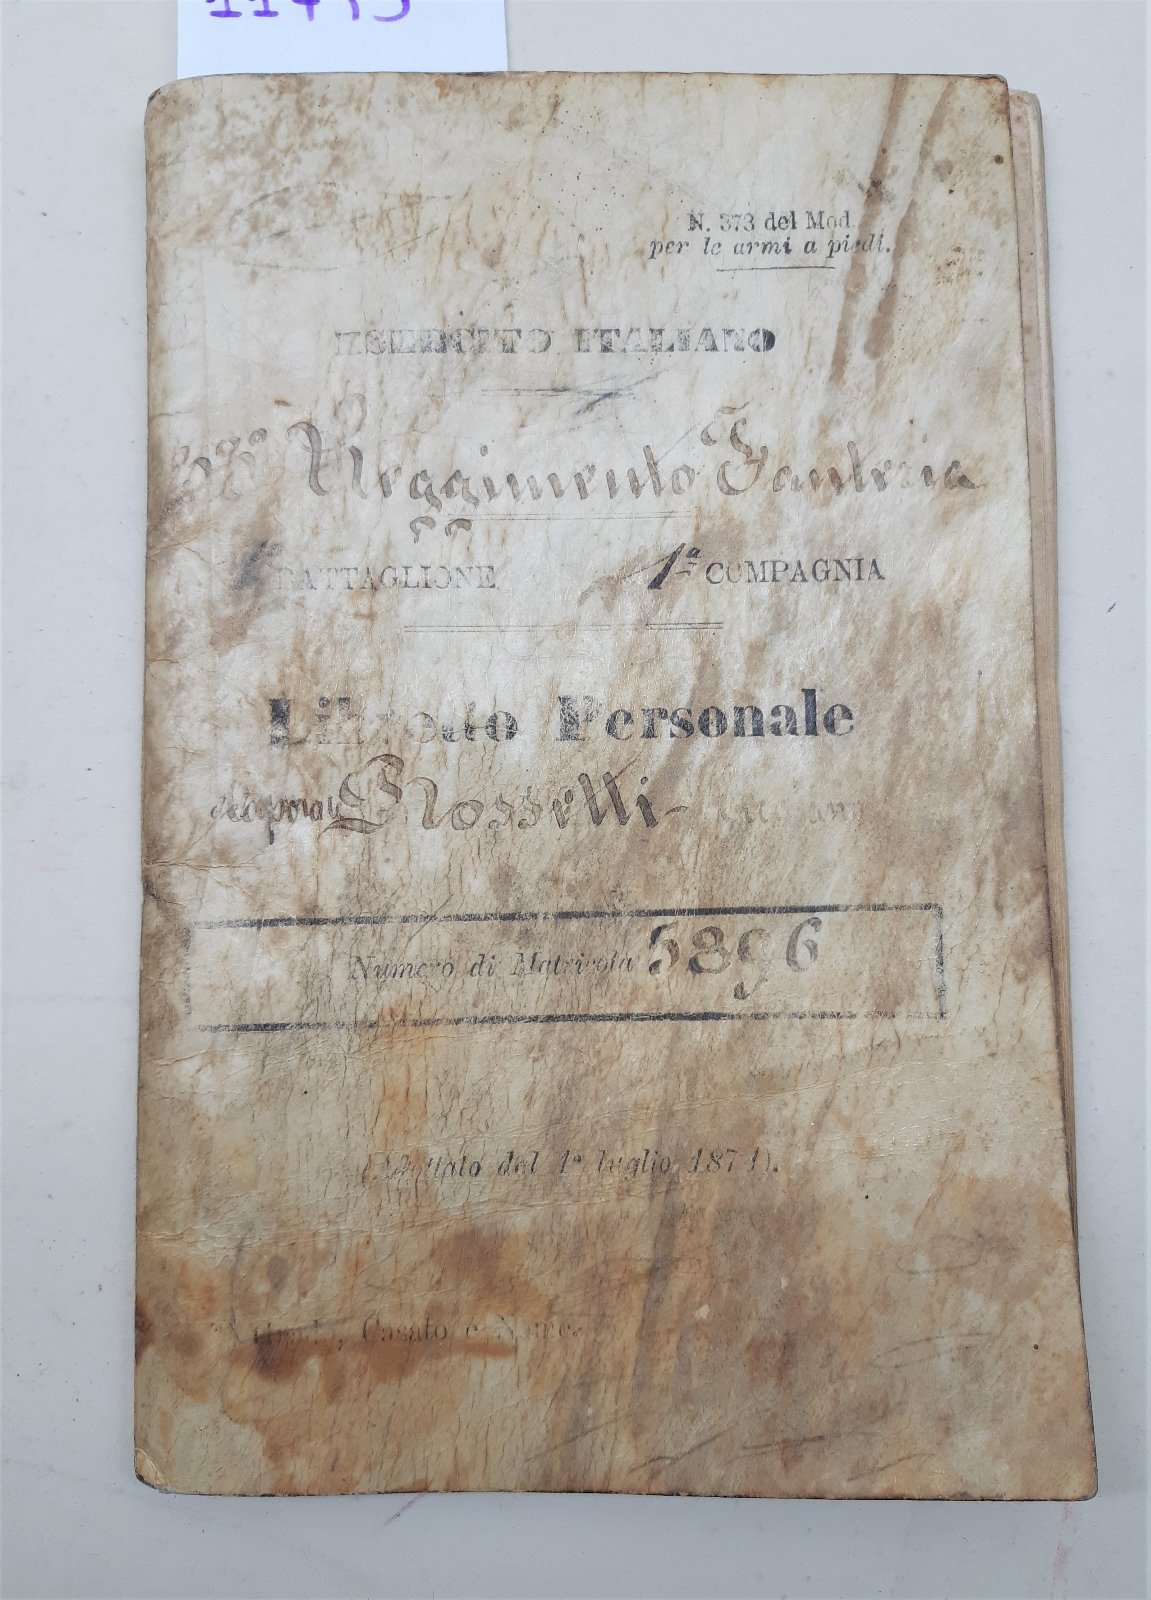 N. 373 del Mod.
per le armi a piedi.
ESERCITO ITALIANO
Reggimento Fanteria
BATTAGLIONE 1ª COMPAGNIA
Libretto Personale
Rosselli
Numero di Matricola 5896
(Adottato del 1º luglio 1871).
Grado, Casato e Nome